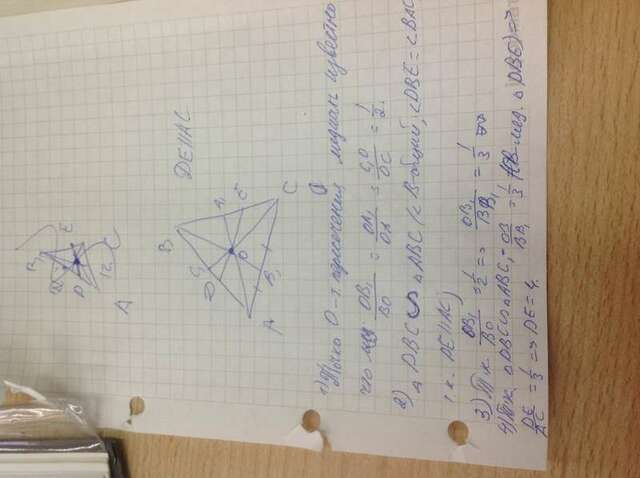 DE||AC
B
C₁
A₁
D
E
O
A
B₁
C
B
D
E
O
12
C
A
1) Точка O - т. пересечения медиан известно
что OB₁/BO = OA₁/OA = C₁O/OC = 1/2.
2) △DBC ∽ △ABC (∠B-общий, ∠DBE = ∠BAC
т.к. DE||AC)
3) Т.к. OB₁/BO = 1/2 => OB₁/BB₁ = 1/3
4) Т.к. △DBC ∽ △ABC, OB/BB₁ = 1/3 (OB-мед. △DBE) =>
DE/AC = 1/3 => DE = 4.